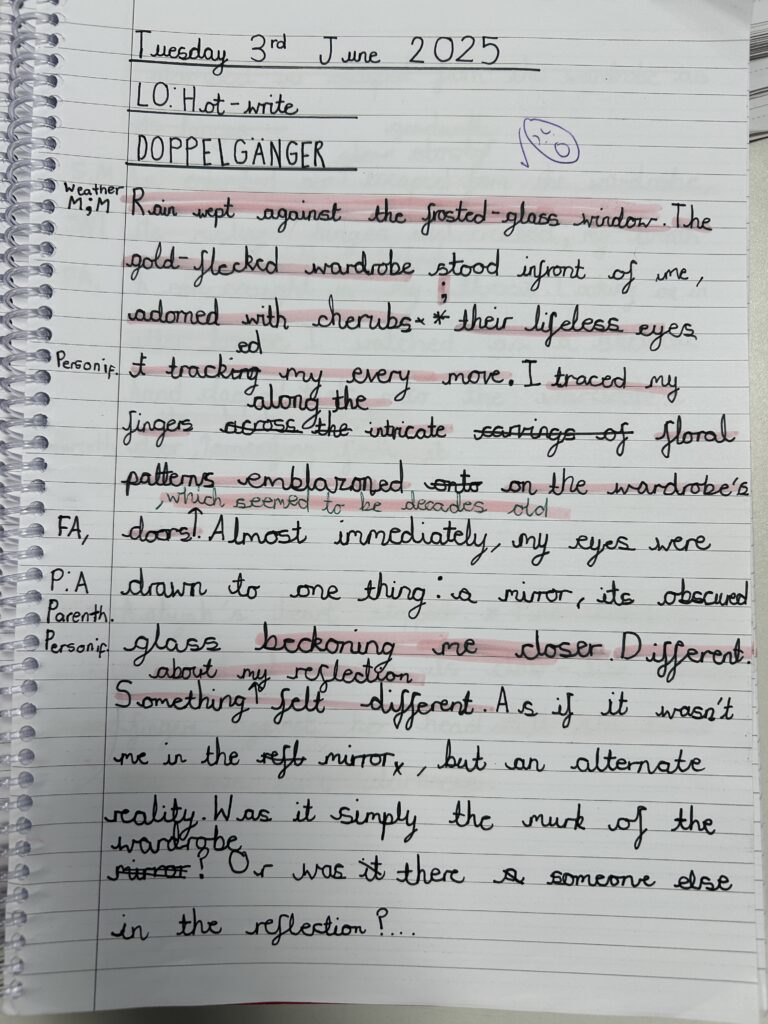 Tuesday 3rd June 2025
LO: Hot-write
DOPPELGÄNGER
Weather
M;M
Rain wept against the frosted-glass window. The
gold-flecked wardrobe stood infront of me,
;
adorned with cherubs * their lifeless eyes
ed
Personif. tracking my every move. I traced my
along the
fingers across the intricate carvings of floral
patterns emblazoned onto on the wardrobe's
, which seemed to be decades old
FA, doors. Almost immediately, my eyes were
P:A drawn to one thing: a mirror, its obscured
Parenth.
Personif. glass beckoning me closer. Different.
about my reflection
Something felt different. As if it wasn't
me in the refl mirror, but an alternate
reality. Was it simply the murk of the
wardrobe
mirror? Or was it there a someone else
in the reflection?...